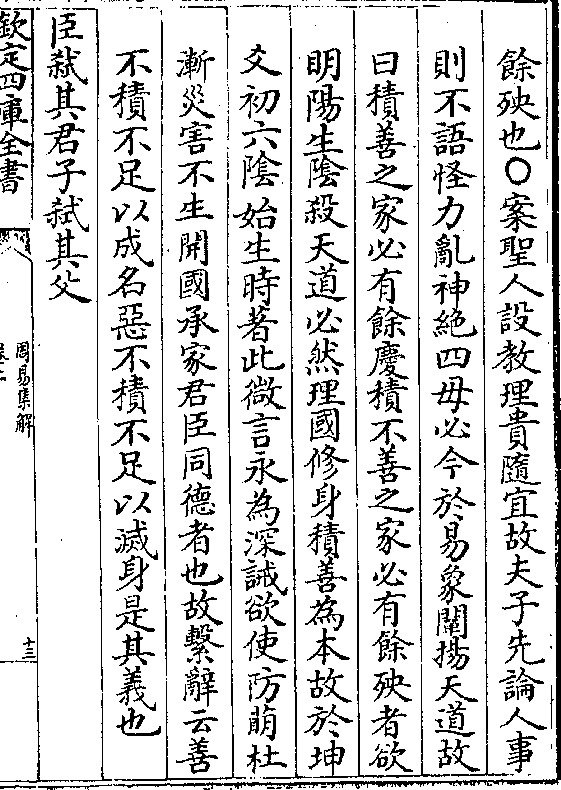 餘殃也○案聖人設教理貴隨宜故夫子先論人事
則不語怪力亂神絶四毋必今於易象闡揚天道故
曰積善之家必有餘慶積不善之家必有餘殃者欲
明陽生陰殺天道必然理國修身積善為本故於坤
爻初六陰始生時著此微言永為深誡欲使防萌杜
漸災害不生開國承家君臣同德者也故繫辭云善
不積不足以成名惡不積不足以滅身是其義也
臣弑其君子弑其父
欽定四庫全書
周易集解
十三